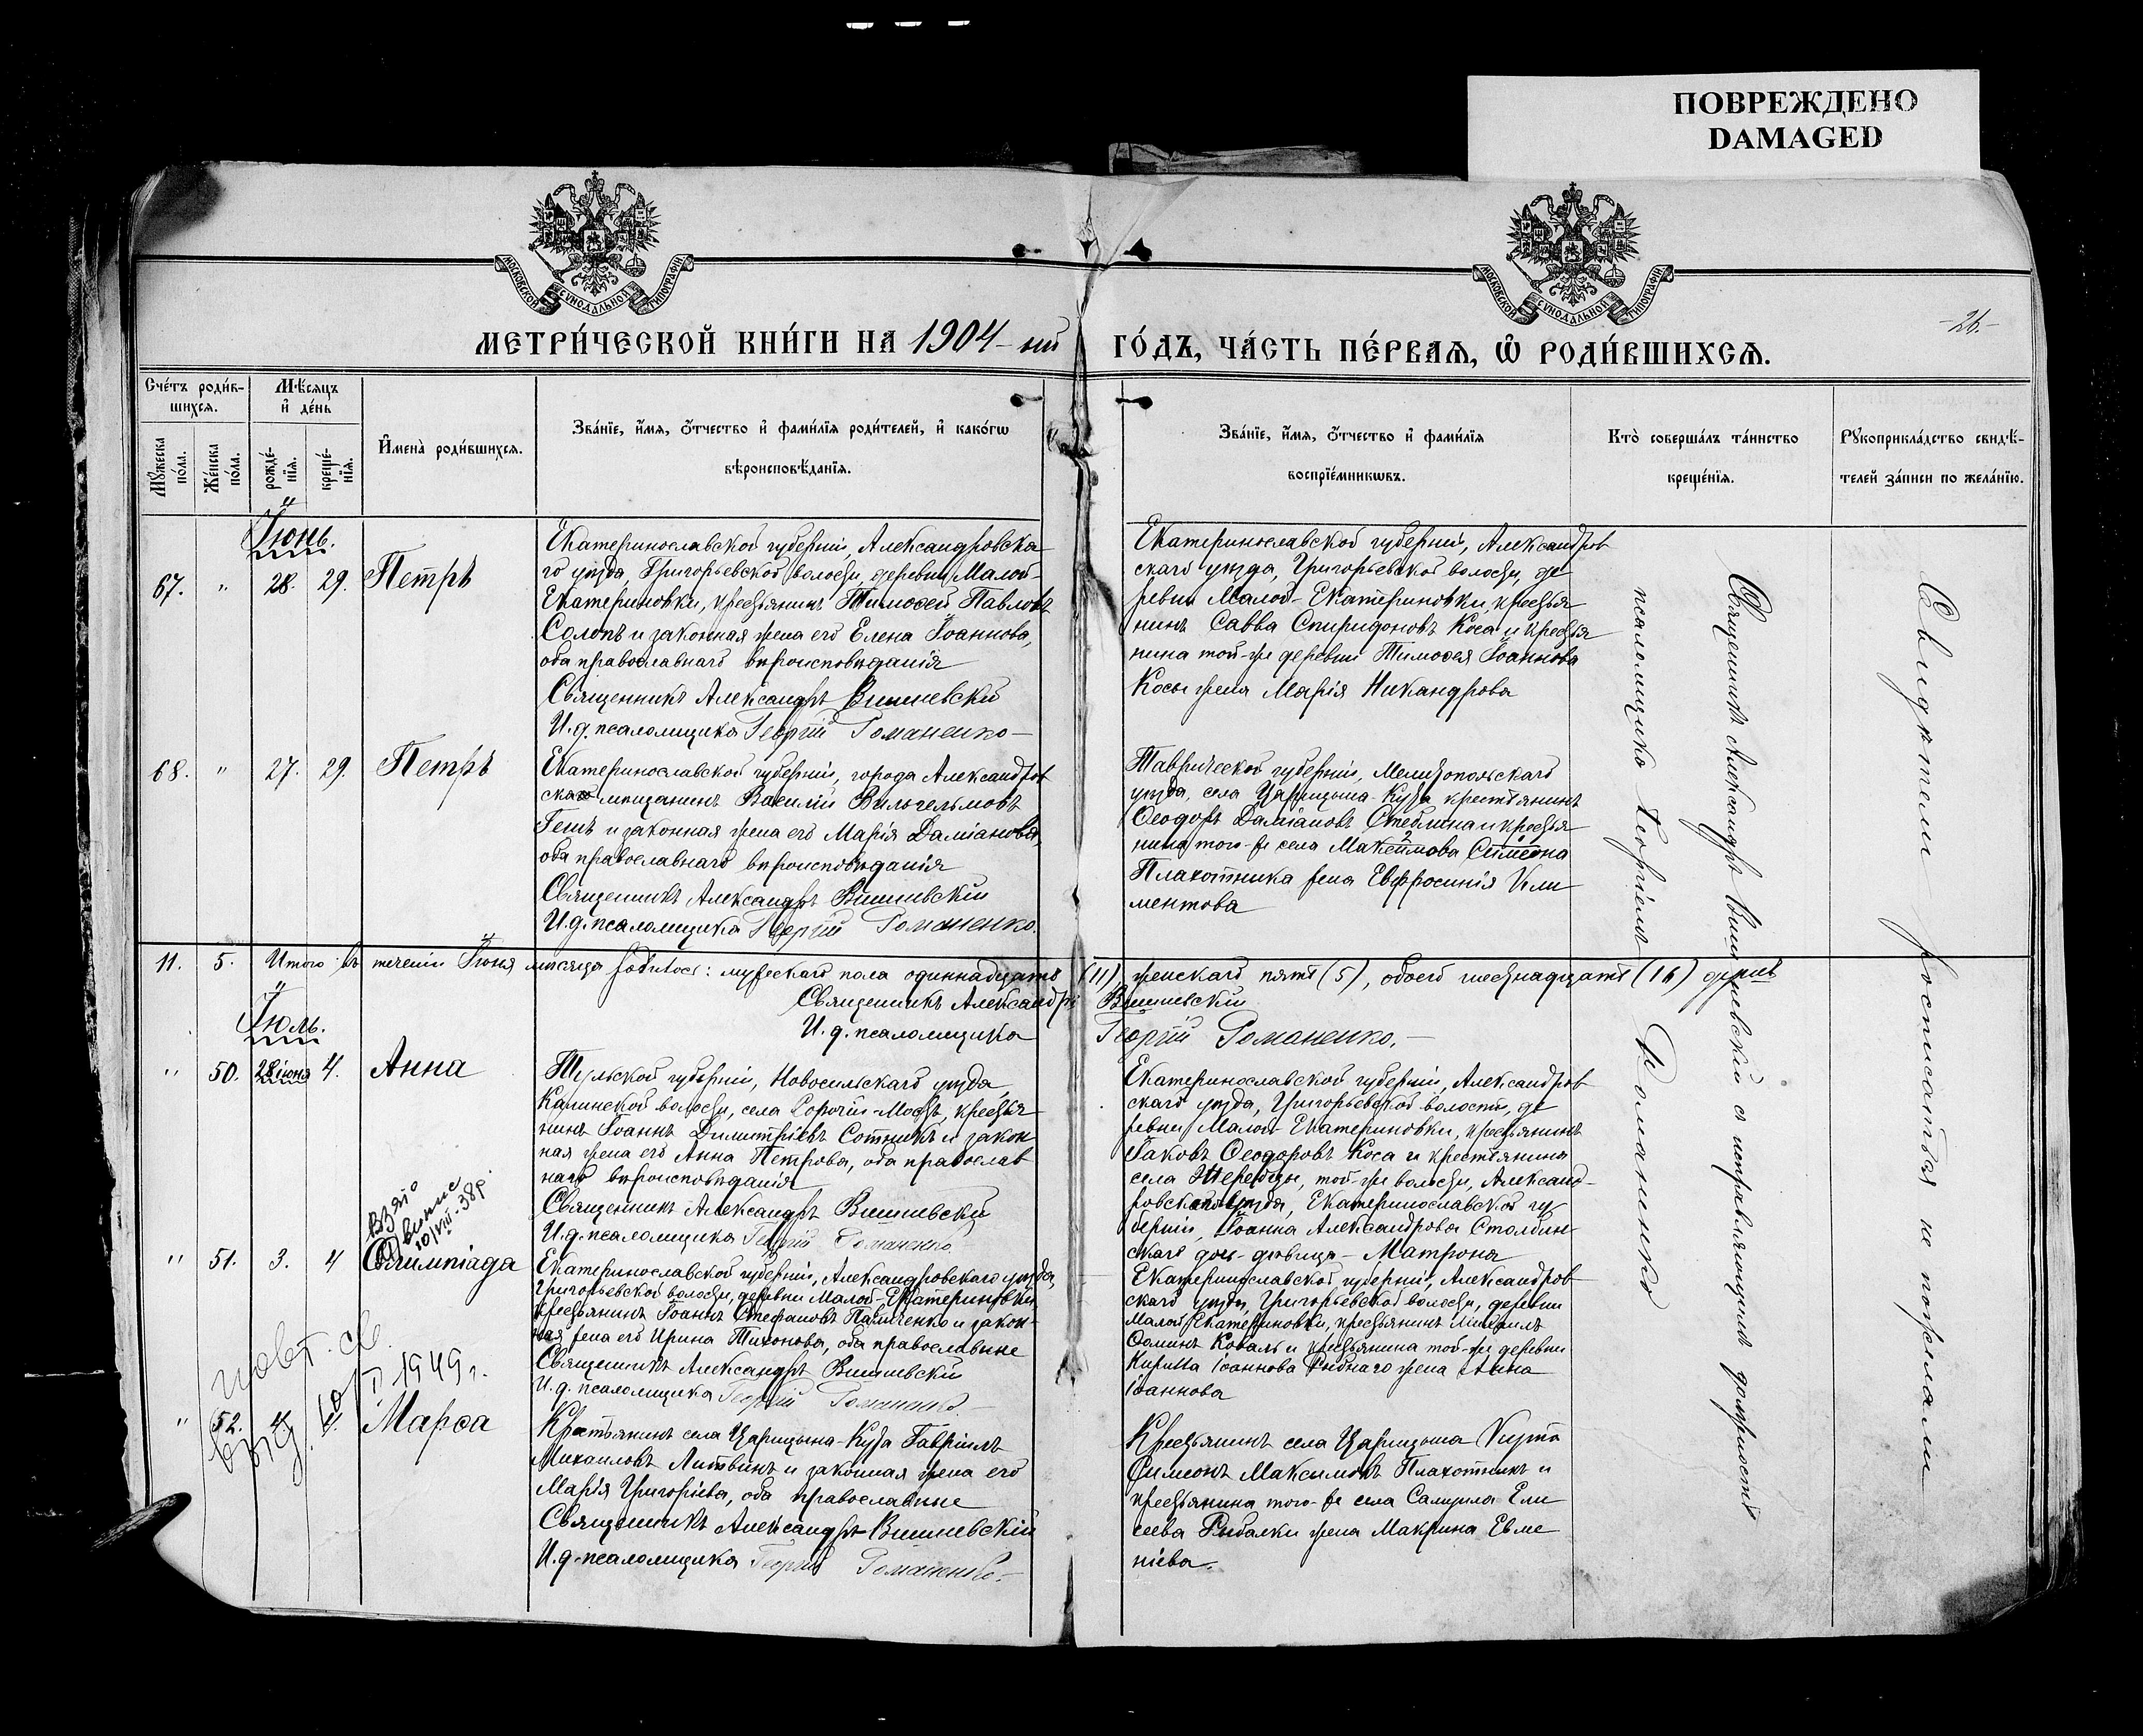 ПОВРЕЖДЕНО
DAMAGED
МОСКОВСКОЙ СѴНОДАЛЬНОЙ ТИПОГРАФІИ
МОСКОВСКОЙ СѴНОДАЛЬНОЙ ТИПОГРАФІИ
-26.-
МЕТРИ́ЧЕСКОЙ КНИ́ГИ НА 1904-ий ГО́ДЪ, ЧА́СТЬ ПЕ́РВАЯ, Ѽ РОДИ́ВШИХСЯ.
Сче́тъ роди́в-
шихся.
Мꙋжеска по́ла.
Же́нска по́ла.
Мѣ́сяцъ
и҆ де́нь
рожде́-
нїя.
креще́-
нїя.
И҆мена̀ роди́вшихся.
Зва́нїе, и҆́мя, ѻ҆́тчество и҆ фами́лїя роди́телей, и҆ како́гѡ
вѣроисповѣ́данїя.
Зва́нїе, и҆́мя, ѻ҆́тчество и҆ фами́лїя
воспрїе́мникѡвъ.
Кто̀ соверша́лъ та́инство
креще́нїя.
Рꙋкоприкла́дство свидѣ́-
телей за́писи по жела́нїю.
Іюнь.
67. " 28. 29. Петръ
Екатеринославской губерніи, Александровска
го уѣзда, Григорьевской волости, деревни Малой-
Екатериновки, крестьянинъ Тимоѳей Павловъ
Солопъ и законная жена его Елена Іоаннова,
оба православнаго вѣроисповѣданія
Священникъ Александръ Вишневскій
И.д.псаломщика Георгій Романенко-
Екатеринославской губерніи, Александров
скаго уѣзда, Григорьевской волости, де
ревни Малой-Екатериновки, крестья
нинъ Савва Спиридоновъ Коса и крестья
нина той-же деревни Тимоѳея Іоаннова
Косы жена Марія Никандрова
68. " 27. 29. Петръ
Екатеринославской губерніи, города Александров
ска мѣщанинъ Василій Вильгельмовъ
и законная жена его Марія Даміанова,
оба православнаго вѣроисповѣданія
Священникъ Александръ Вишневскій
И.д.псаломщика Георгій Романенко.
Таврической губерніи, Мелитопольскаго
уѣзда, села Царицына-Кута крестьянинъ
Ѳеодоръ Даміановъ Стеблина и крестья
нина того-же села Максимова Симеона
Плахотника жена Евфросинія Кли
ментова
11. 5. Итого въ теченіи Іюня мѣсяца родилось: мужескаго пола одиннадцать (11), женскаго пять (5), обоего шестнадцать (16) душъ
Священникъ Александръ Вишневскій
И.д.псаломщика Георгій Романенко.-
Іюль.
" 50. 28 іюня 4. Анна
Тульской губерніи, Новосильскаго уѣзда,
волости, села Сорочій-Мостъ, крестья
нинъ Іоаннъ Димитріевъ Сотникъ и закон-
ная жена его Анна Петрова, оба православ
наго вѣроисповѣданія
Священникъ Александръ Вишневскій
И.д.псаломщика Георгій Романенко
Екатеринославской губерніи, Александров
скаго уѣзда, Григорьевской волости, де
ревни Малой-Екатериновки, крестьянинъ
Іаковъ Ѳеодоровъ Коса и крестьянина
села Жеребцы, той-же волости, Александ-
ровскаго уѣзда, Екатеринославской гу
берніи, Іоанна Александрова Столбин-
скаго дочь-дѣвица-Матрона
Взято
10/VIII-38р.
" 51. 3. 4 Олимпіада
Екатеринославской губерніи, Александровскаго уѣзда,
Григорьевской волости, деревни Малой-Екатериновки
крестьянинъ Іоаннъ Стефановъ и закон-
ная жена его Ирина Тихонова, оба православные
Священникъ Александръ Вишневскій
И.д.псаломщика Георгій Романенко.-
Екатеринославской губерніи, Александров
скаго уѣзда, Григорьевской волости, деревни
Малой Екатериновки, крестьянинъ Михаилъ
Ѳоминъ Коваль и крестьянина той-же деревни
Кирилла Іоаннова Рыбнаго жена Анна
Іоаннова
повт. св.
1949 г.
" 52. 4. Марѳа
Крестьянинъ села Царицына-Кута Гавріилъ
Михаиловъ Литвинъ и законная жена его
Марія Григоріева, оба православные
Священникъ Александръ Вишневскій
И.д.псаломщика Георгій Романенко.-
Крестьянинъ села Царицына Кута
Симеонъ Максимовъ Плахотникъ и
крестьянина того-же села Самуила Ели
сеева Рыбалки жена Макрина Евме
ніева.
Священникъ Александръ Вишневскій съ исправляющимъ должность
псаломщика Георгіемъ Романенко
Свидѣтели росписаться не пожелали